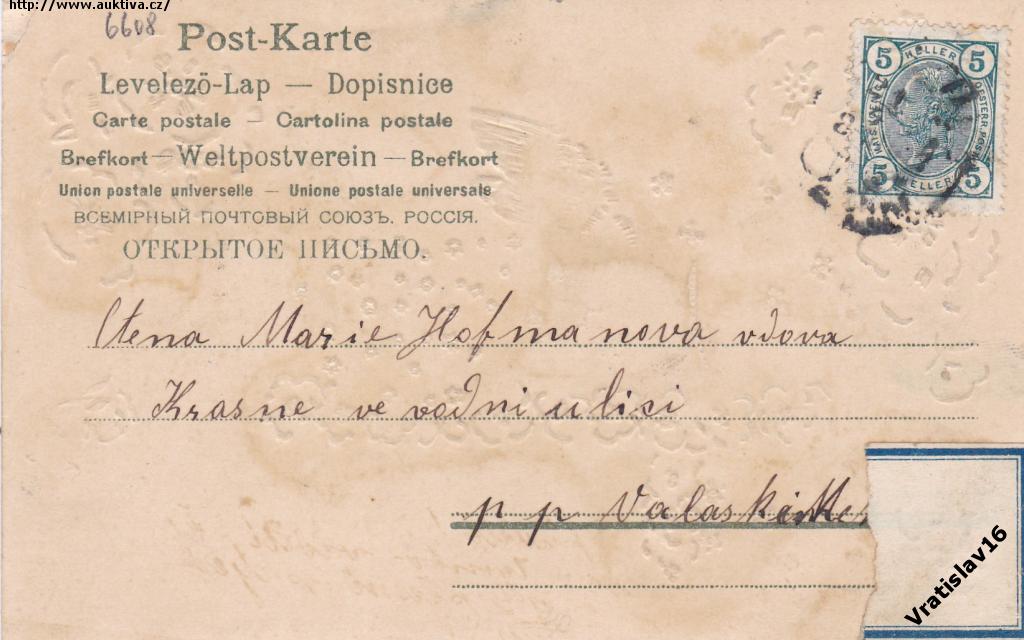 http://www.auktiva.cz/
6608
Post-Karte
Levelező-Lap — Dopisnice
Carte postale — Cartolina postale
Brefkort — Weltpostverein — Brefkort
Union postale universelle — Unione postale universale
ВСЕМІРНЫЙ ПОЧТОВЫЙ СОЮЗЪ. РОССІЯ.
ОТКРЫТОЕ ПИСЬМО.
5 HELLER 5
5 HELLER 5
Ctena Marie Hofmanova vdova
Krasne ve vodni ulisi
p p Valaski
Vratislav16